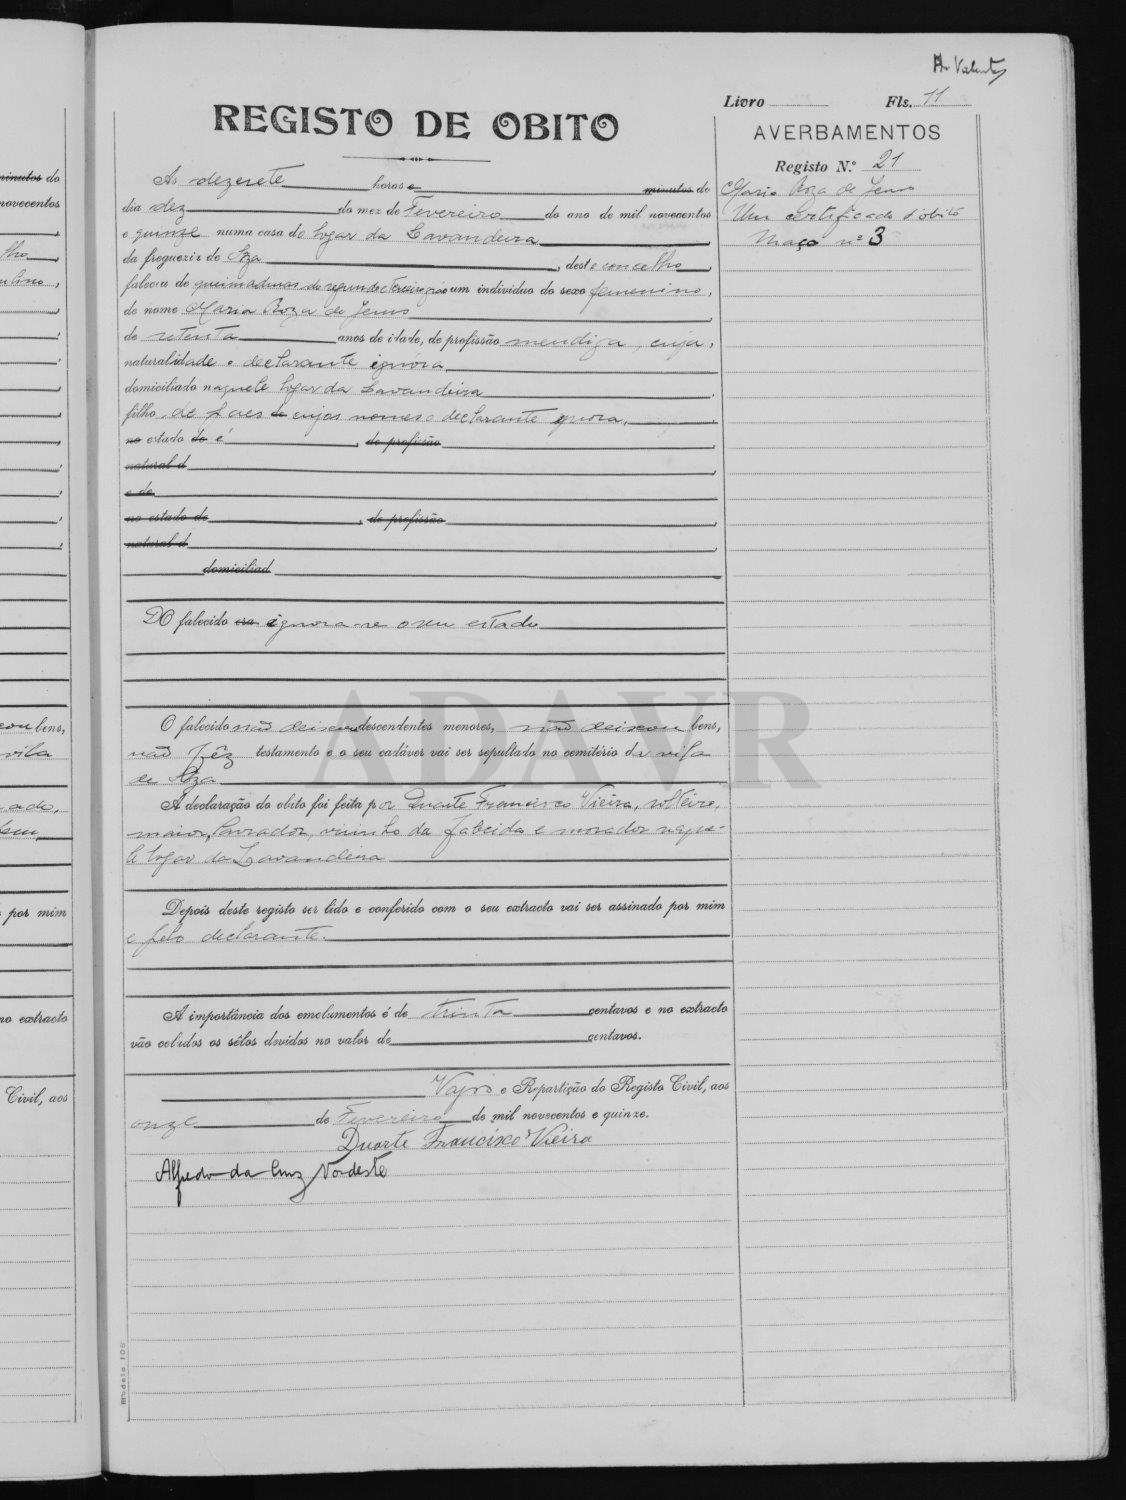 Livro Fls. 11
REGISTO DE OBITO
AVERBAMENTOS
Registo N.º 21
Maria Roza de Jesus
Um certificado d'obito
Maço nº 3
As dezesete horas e minutos do
dia dez do mez de Fevereiro do ano de mil novecentos
e quinze numa casa do logar da Lavandeira,
da freguezia de Soza, deste concelho,
faleceu de queimaduras do segundo e terceiro gráo um individuo do sexo femenino,
de nome Maria Roza de Jesus,
de setenta anos de idade, de profissão mendiga, cuja,
naturalidade o declarante ignóra,
domiciliado naquele logar da Lavandeira,
filho de paes de cujos nomes o declarante ignora,
no estado do é, de profissão
natural d
e de
no estado de, de profissão
natural d
domiciliad
O falecido era ignora-se o seu estado
O falecido não deixou descendentes menores, não deixou bens,
não fêz testamento e o seu cadáver vai ser sepultado no cemitério da vila
de Soza
A declaração do obito foi feita por Duarte Francisco Vieira, solteiro,
maior, lavrador, visinho da falecida e morador naque-
le logar da Lavandeira
Depois deste registo ser lido e conferido com o seu extracto vai ser assinado por mim
e pelo declarante.
A importância dos emolumentos é de trinta centavos e no extracto
vão colados os sêlos devidos no valor de centavos.
Vagos e Repartição do Registo Civil, aos
onze de Fevereiro de mil novecentos e quinze.
Duarte Francisco Vieira
Alfredo da Cruz Nordeste
Modelo 105
ADAVR
minutos do
novecentos
bens,
vila
por mim
no extracto
Civil, aos